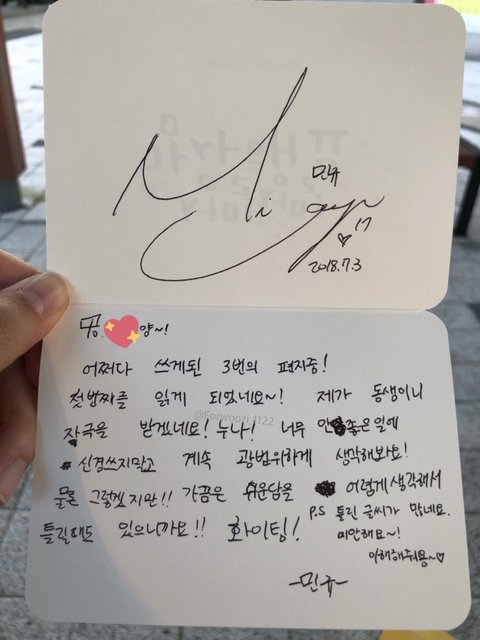 Mingyu
민규
17
2018.7.3
양~!
어쩌다 쓰게된 3번의 편지중!
첫번째를 읽게 되었네요~! 제가 동생이니
자극을 받겠네요! 누나! 너무 안좋은일에
신경쓰지말고 계속 광범위하게 생각해봐요!
물론 그렇겠지만!! 가끔은 쉬운답을 어렵게생각해서
틀릴때도 있으니까요!! 화이팅!
P.S 틀린 글씨가 많네요.
미안해요~!
이해해줘용~♡
-민규-
@Forwoozi_1122